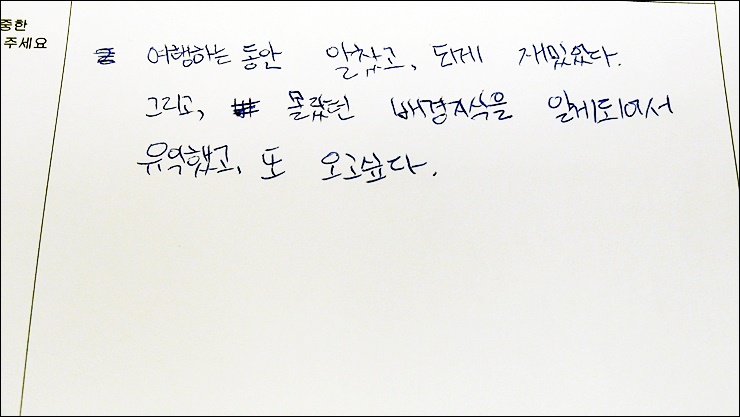 중한
주세요
여행하는 동안 알찼고, 되게 재밌었다.
그리고, 몰랐던 배경지식을 알게되어서
유익했고, 또 오고싶다.